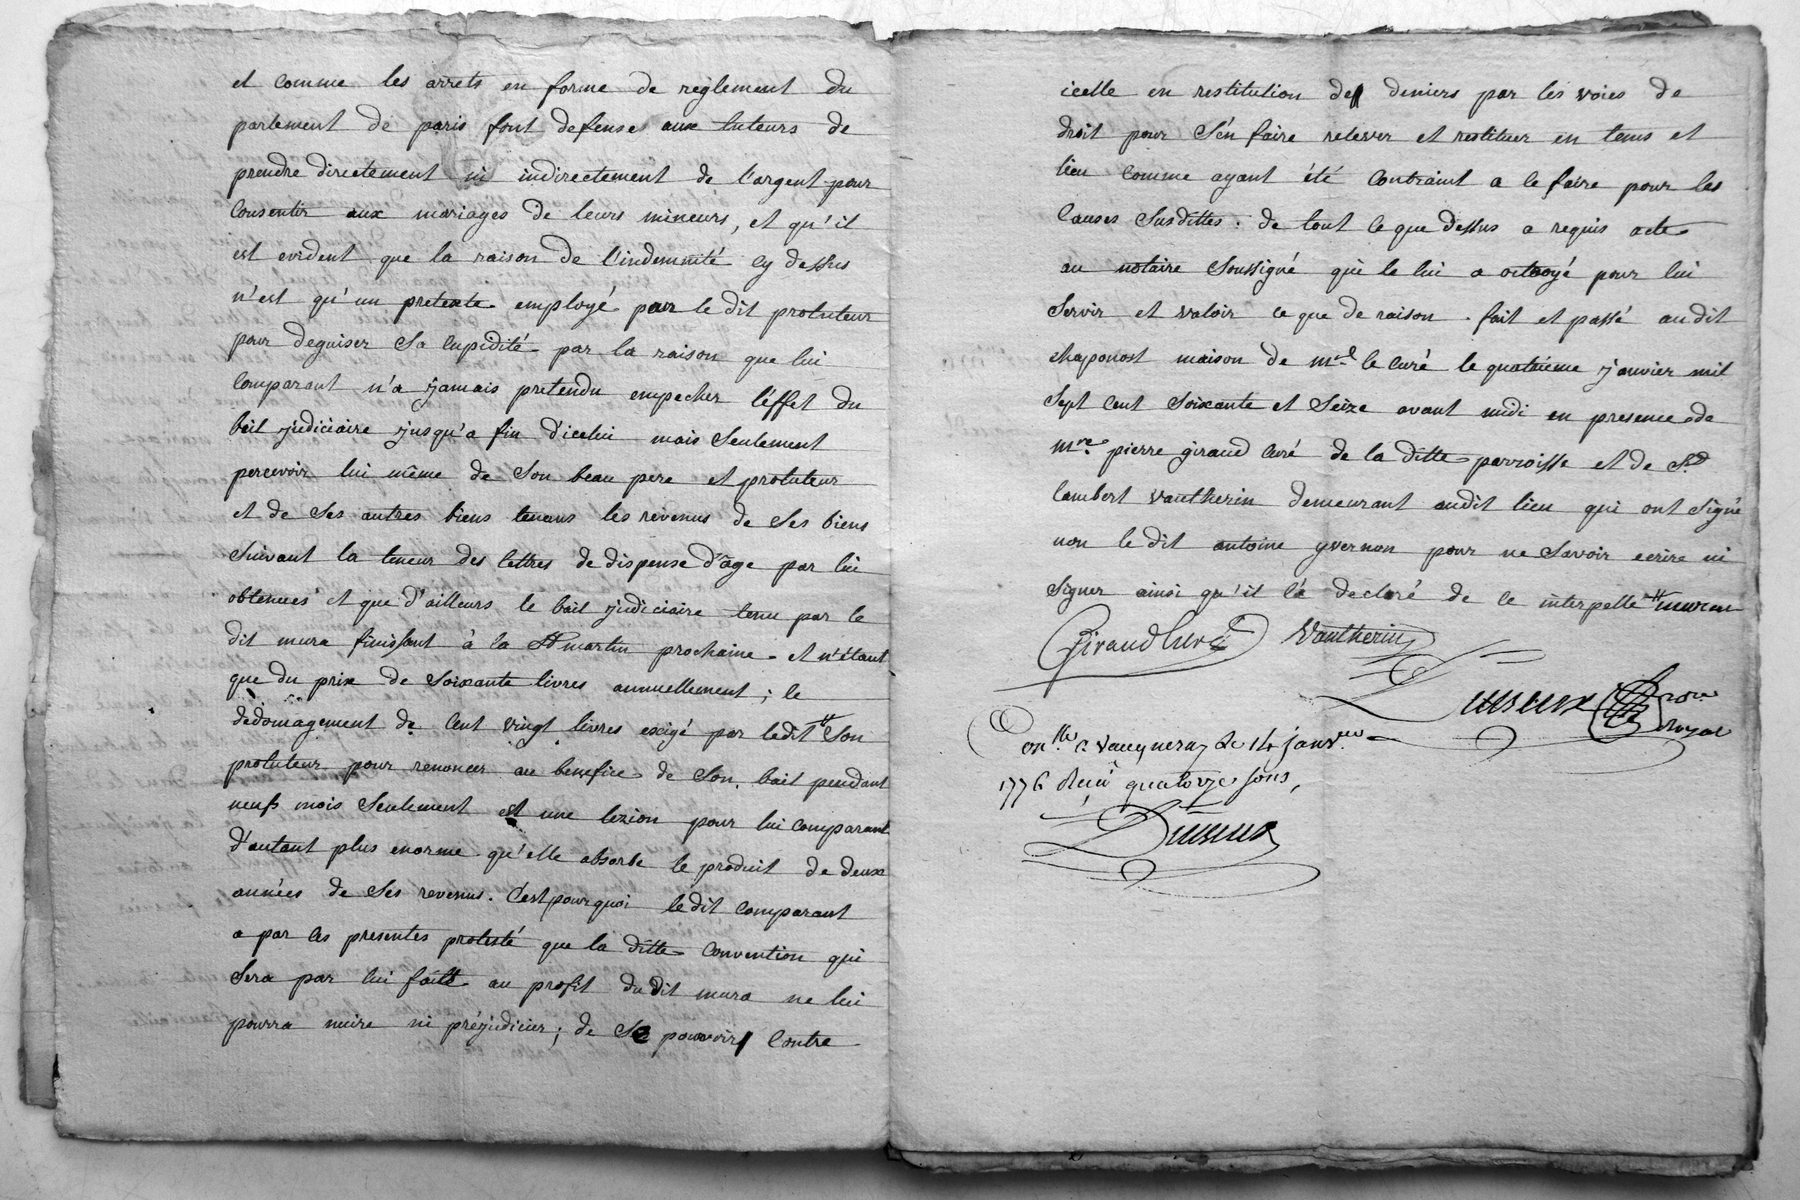 et comme les arrets en forme de reglement du
parlement de paris font defenses aux tuteurs de
prendre directement ni indirectement de l'argent pour
consentir aux mariages de leurs mineurs, et qu'il
est evident que la raison de l'indemnité cy dessus
n'est qu'un pretexte employé par le dit protuteur
pour deguiser sa cupidité par la raison que lui
comparant n'a jamais pretendu empecher l'effet du
bail judiciaire jusqu'a fin d'icelui mais seulement
percevoir lui même de son beau pere et protuteur
et de ses autres biens tenans les revenus de ses biens
suivant la teneur des lettres de dispense d'âge par lui
obtenues et que d'ailleurs le bail judiciaire tenu par le
dit mura finissant à la St martin prochaine et n'étant
que du prix de soixante livres annuellement ; le
dedomagement de cent vingt livres exigé par ledit son
protuteur pour renoncer au benefice de son bail pendant
neufs mois seulement est une lezion pour lui comparant
d'autant plus enorme qu'elle absorbe le produit de deux
années de ses revenus. C'est pourquoi le dit comparant
a par ces presentes protesté que la ditte convention qui
sera par lui faitte au profit du dit mura ne lui
pourra nuire ni préjudicier ; de se pouvoir contre
icelle en restitution de deniers par les voies de
droit pour s'en faire relever et restituer en tems et
lieu comme ayant été contraint a le faire pour les
causes susdittes : de tout ce que dessus a requis acte
au notaire soussigné qui le lui a octroyé pour lui
servir et valoir ce que de raison . fait et passé au dit
chaponost maison de mre le curé le quatrieme janvier mil
sept cent soixante et seize avant midi en presence de
mre pierre giraud curé de la ditte parroisse et de Sr
lambert vautherin demeurant audit lieu qui ont signé
non le dit antoine yvernon pour ne savoir ecrire ni
signer ainsi qu'il l'a declaré de ce interpellé
Giraud curé Vautherin
nore
Royal
Con.lle a Vaugneray le 14 janv.
1776 Recu quatorze sous,